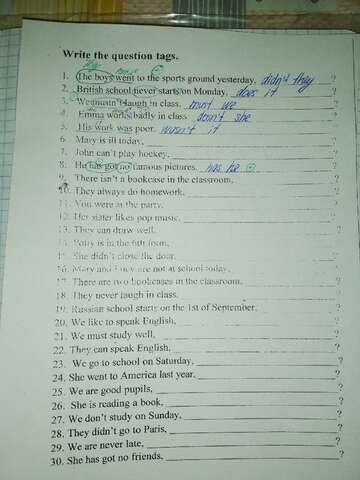 Write the question tags.
1. The boys went to the sports ground yesterday, didn't they?
2. British school never starts on Monday, does it?
3. We mustn't laugh in class, must we?
4. Emma works badly in class, doesn't she?
5. His work was poor, wasn't it?
6. Mary is ill today, ?
7. John can't play hockey, ?
8. He has got no famous pictures, has he?
9. There isn't a bookcase in the classroom, ?
10. They always do homework, ?
11. You were at the party, ?
12. Her sister likes pop music, ?
13. They can draw well, ?
14. is in the 6th form, ?
15. She didn't close the door, ?
16. Mary and Lucy are not at school today, ?
17. There are two bookcases in the classroom, ?
18. They never laugh in class, ?
19. Russian school starts on the 1st of September, ?
20. We like to speak English, ?
21. We must study well, ?
22. They can speak English, ?
23. We go to school on Saturday, ?
24. She went to America last year, ?
25. We are good pupils, ?
26. She is reading a book, ?
27. We don't study on Sunday, ?
28. They didn't go to Paris, ?
29. We are never late, ?
30. She has got no friends, ?